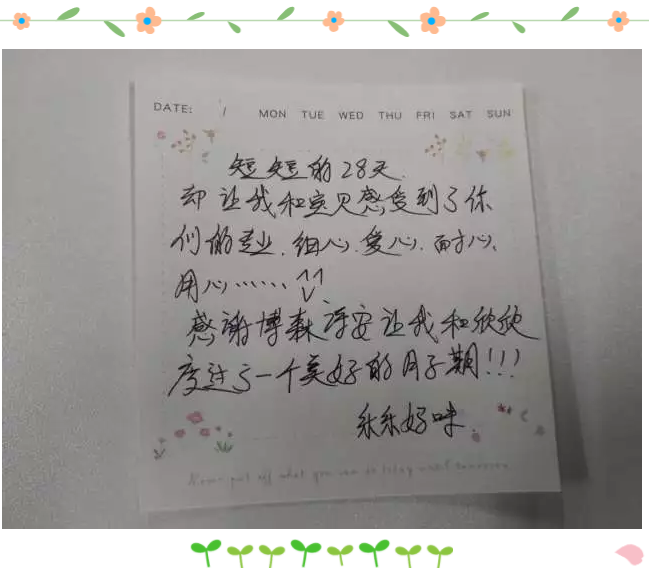 DATE: / MON TUE WED THU FRI SAT SUN
短短的28天.
却让我和宝贝感受到了你
们的专业.细心.爱心.耐心、
用心…… ^^
感谢博森淳安让我和欣欣
度过了一个美好的月子期!!!
乐乐好咪.
Never put off what you can do today until tomorrow